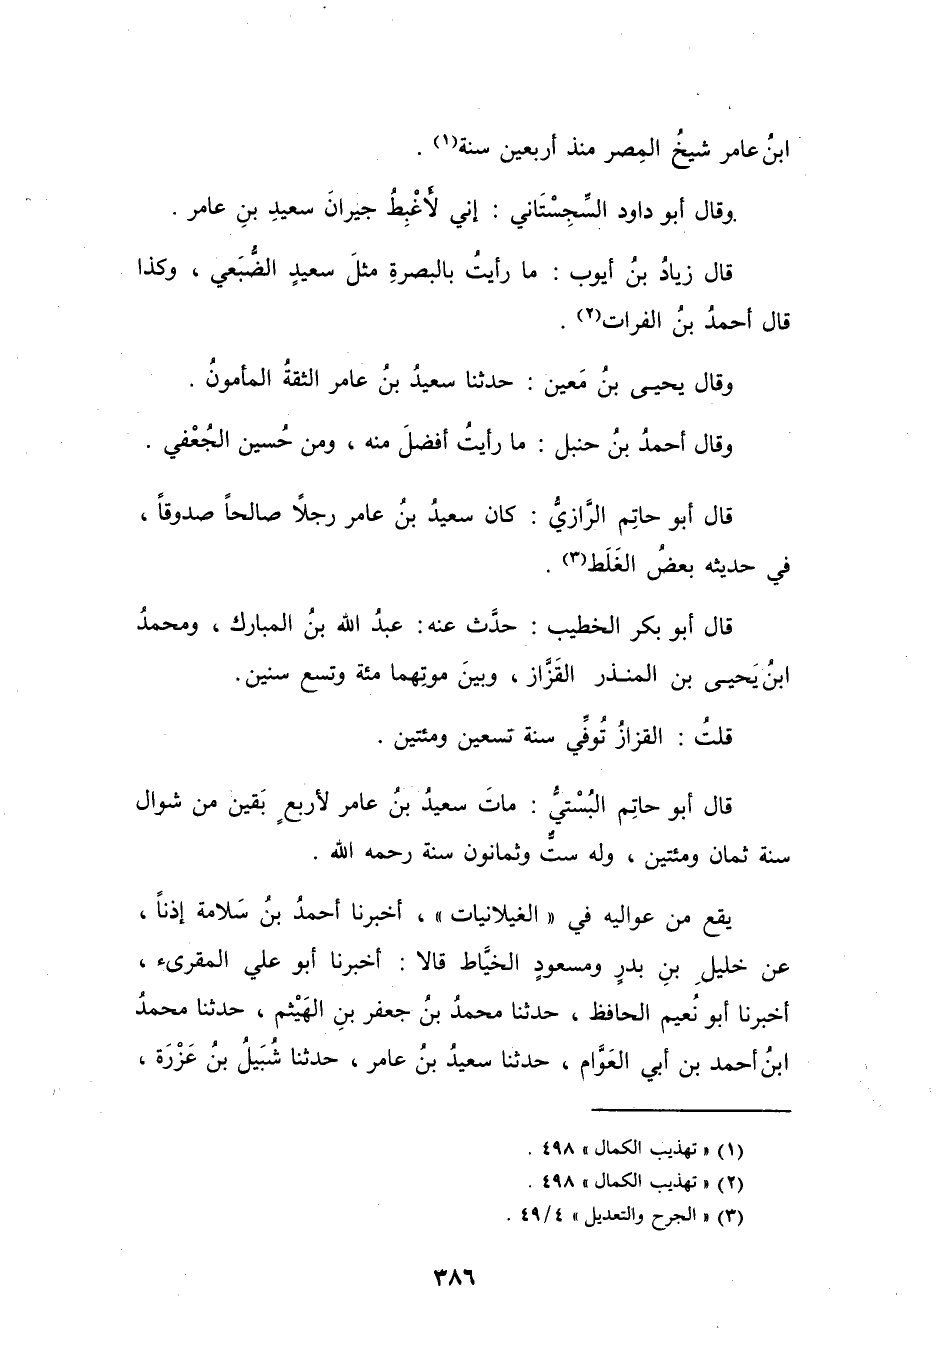 ابنُ عامر شيخُ المِصر منذ أربعين سنة(١) .
وقال أبو داود السِّجِسْتَاني : إني لَأَغْبِطُ جيرانَ سعيدِ بنِ عامر .
قال زيادُ بنُ أيوب : ما رأيتُ بالبصرةِ مثلَ سعيدٍ الضُّبَعي ، وكذا
قال أحمدُ بنُ الفرات(٢) .
وقال يحيـى بنُ مَعين : حدثنا سعيدُ بنُ عامر الثقةُ المأمونُ .
وقال أحمدُ بنُ حنبل : ما رأيتُ أفضلَ منه ، ومن حُسين الجُعْفي .
قال أبو حاتِم الرَّازيُّ : كان سعيدُ بنُ عامر رجلًا صالحاً صدوقاً ،
في حديثه بعضُ الغَلَط(٣) .
قال أبو بكر الخطيب : حدَّث عنه : عبدُ الله بنُ المبارك ، ومحمدُ
ابنُ يَحيـى بن المنـذر القَزَّاز ، وبينَ موتِهما مئة وتسع سنين .
قلتُ : القزازُ تُوفِّي سنة تسعين ومئتين .
قال أبو حاتِم البُسْتيُّ : ماتَ سعيدُ بنُ عامر لأربعٍ بَقين من شوال
سنة ثمان ومئتين ، وله ستٌّ وثمانون سنة رحمه الله .
يقع من عواليه في « الغيلانيات » ، أخبرنا أحمدُ بنُ سَلامة إذناً ،
عن خليلِ بنِ بدرٍ ومسعودٍ الخيَّاط قالا : أخبرنا أبو علي المقرىء ،
أخبرنا أبو نُعيم الحافظ ، حدثنا محمدُ بنُ جعفر بنِ الهَيْثم ، حدثنا محمدُ
ابنُ أحمد بن أبي العَوَّام ، حدثنا سعيدُ بنُ عامر ، حدثنا شُبَيلُ بنُ عَزْرَة ،
(١) « تهذيب الكمال » ٤٩٨ .
(٢) « تهذيب الكمال » ٤٩٨ .
(٣) « الجرح والتعديل » ٤/ ٤٩ .
٣٨٦